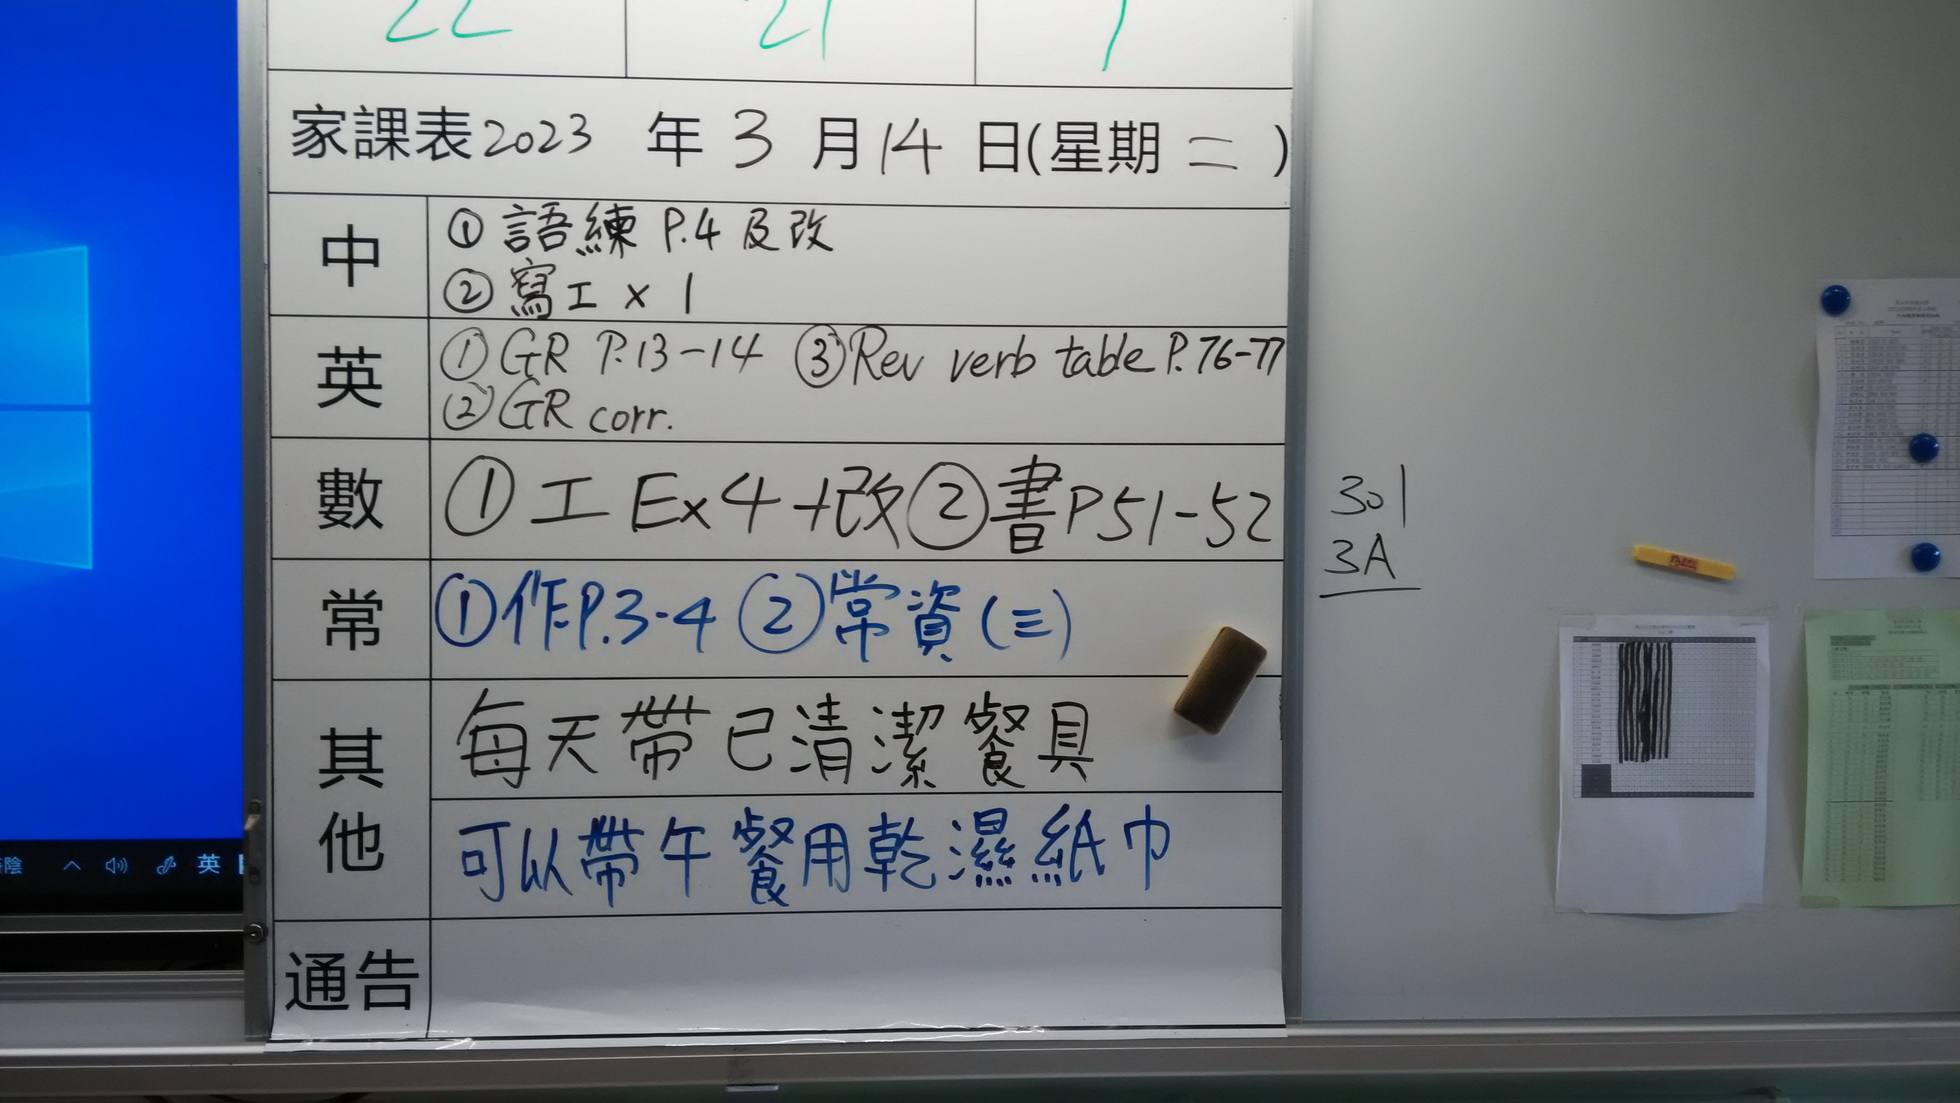 22 21 1
家課表2023年3月14日(星期二)
中
①語練 P.4 及改
②寫工 x 1
英
①GR P.13-14 ③Rev verb table P.76-77
②GR corr.
數
①工 Ex4+改②書P51-52
常
①作P.3-4 ②常資(三)
其他
每天帶已清潔餐具
可以帶午餐用乾濕紙巾
通告
301
3A
英